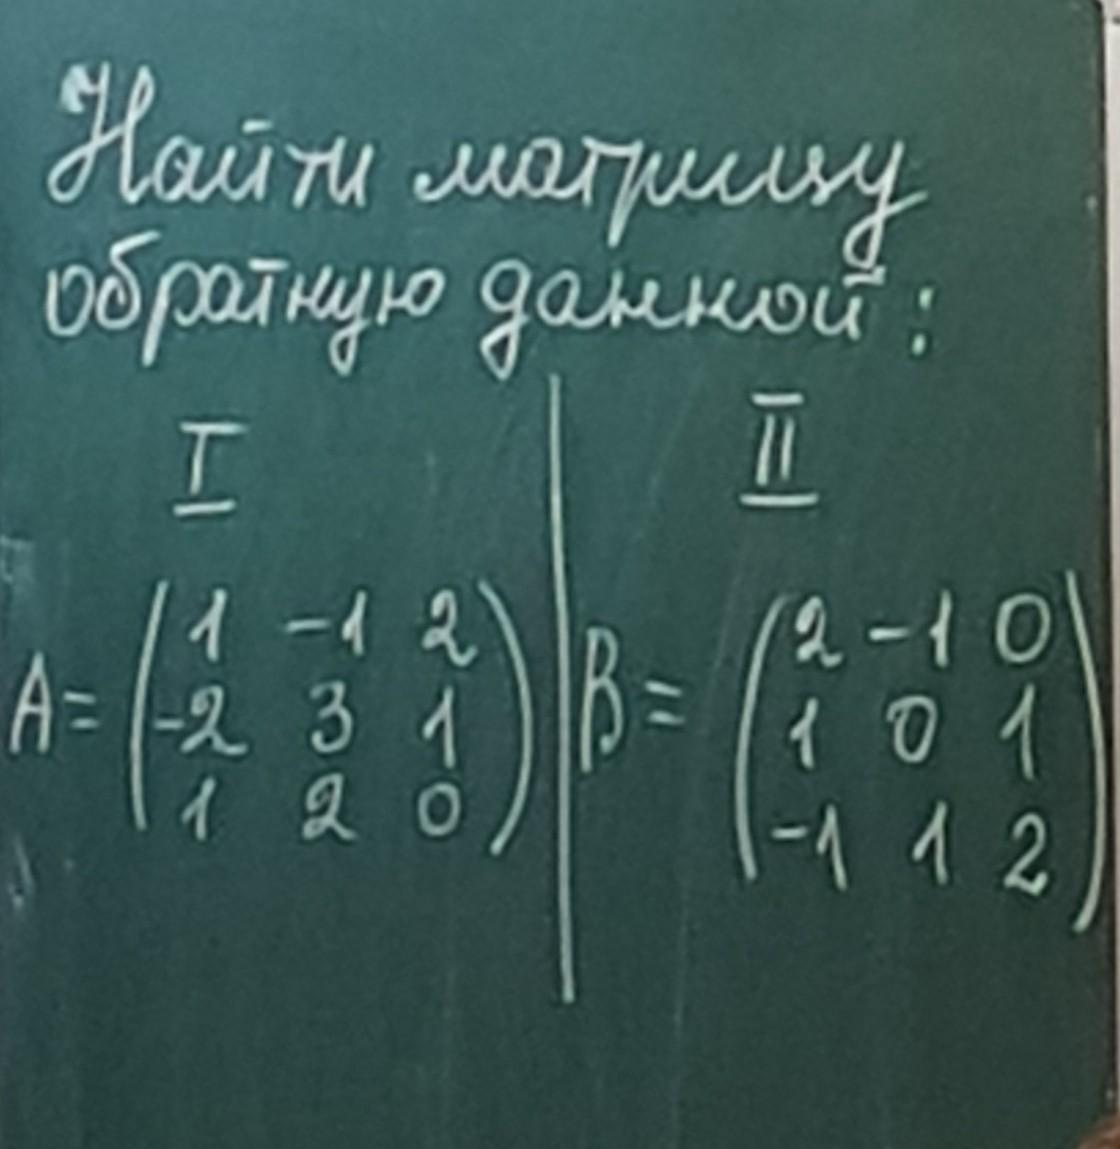 Найти матрицу
обратную данной:
I
A = ( 1 -1 2
-2 3 1
1 2 0 )
II
B = ( 2 -1 0
1 0 1
-1 1 2 )